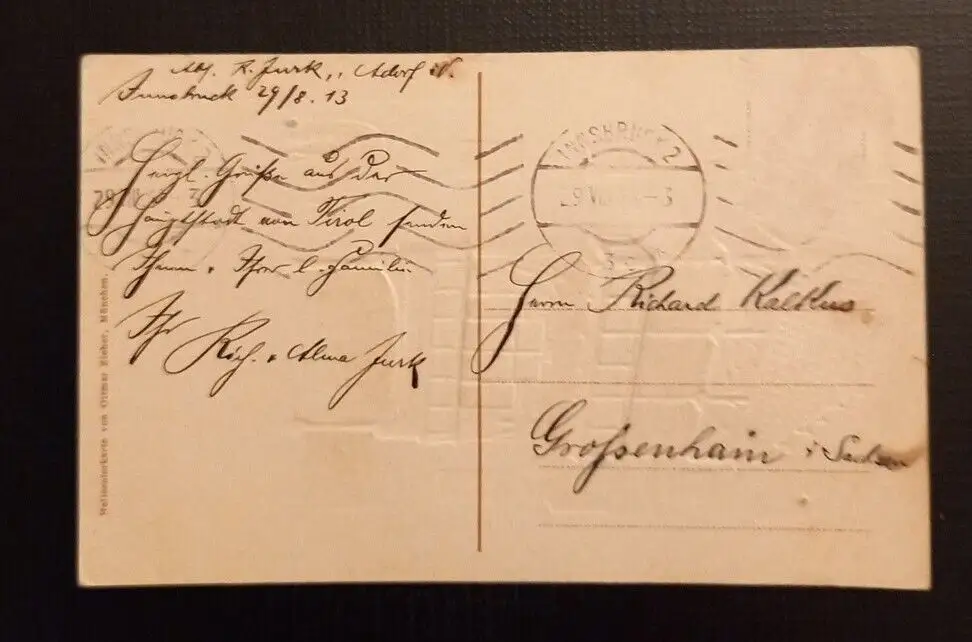 Abs. R. Jurk, Adorf i/V.
Innsbruck 29/8. 13
Herzl. Grüße aus der
Hauptstadt von Tirol senden
Ihnen u. Ihrer l. Familie
Ihr
Rich. u. Alma Jurk
INNSBRUCK 2
Herrn Richard Kalkus
Großenhain i. Sachsen
Reliefkarte von Ottmar Zieher, München.